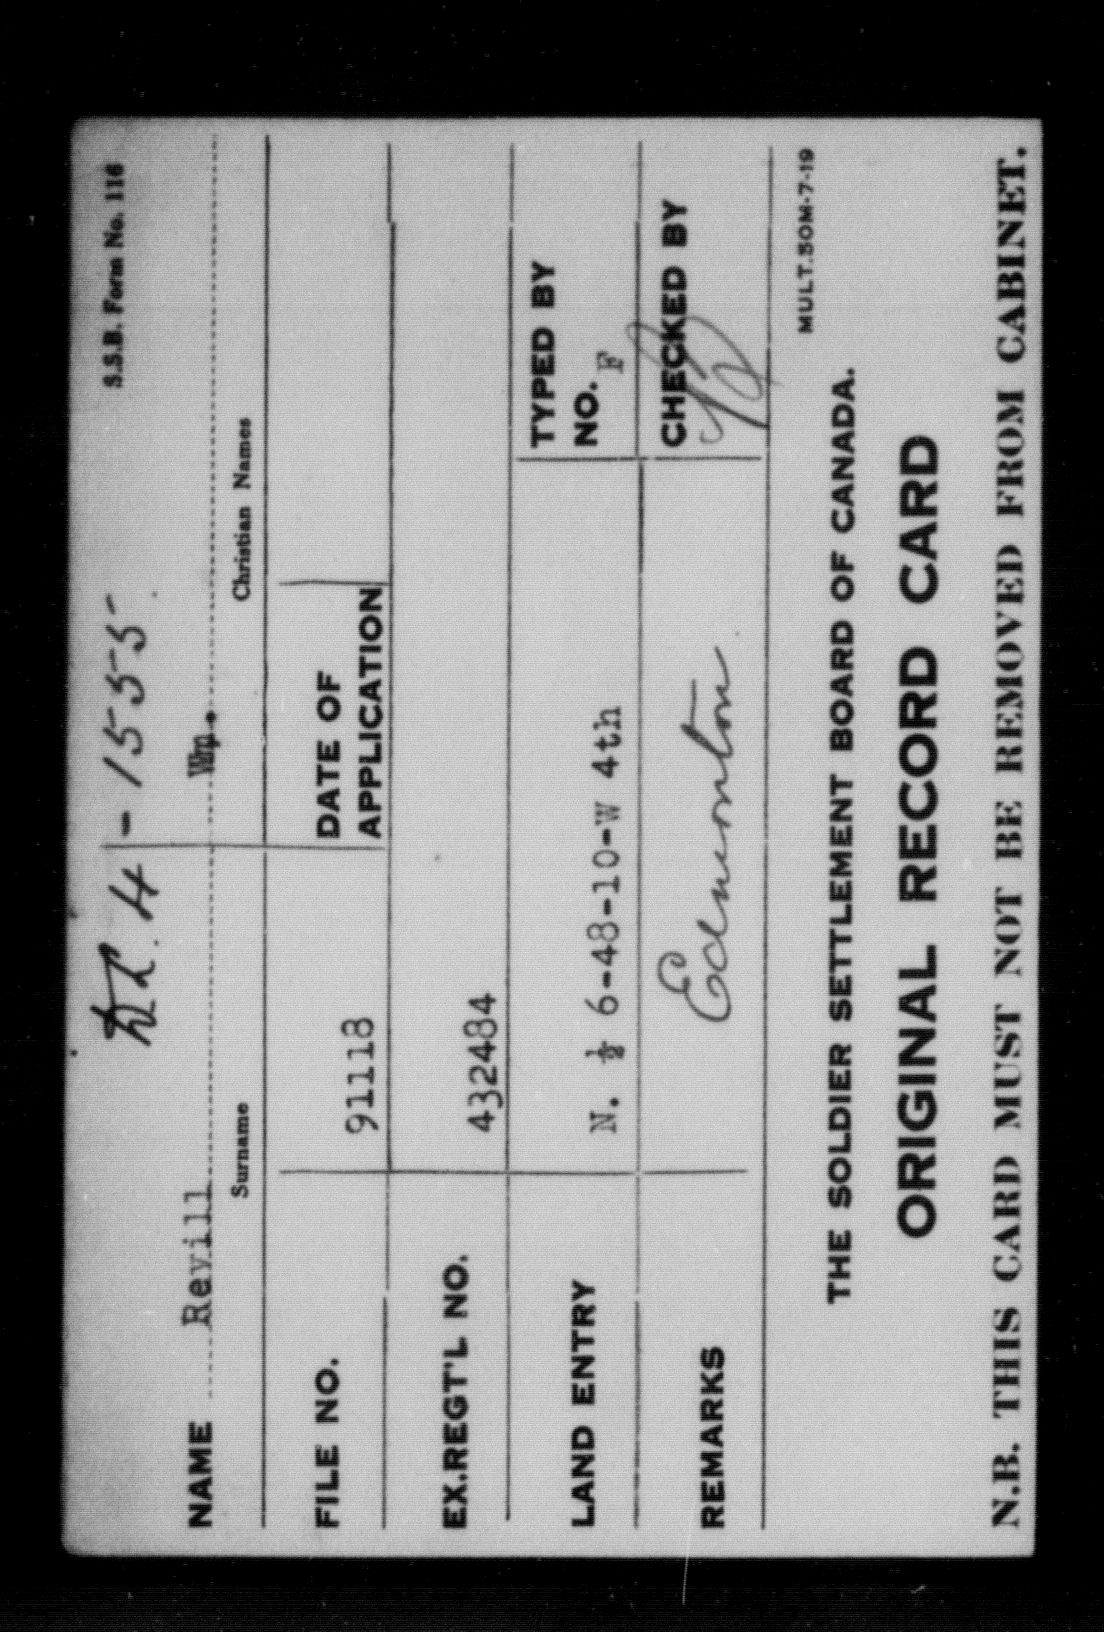 S.S.B. Form No. 116
4-1555
NAME Revill Wm.
Surname Christian Names
FILE NO. 91118 DATE OF APPLICATION
EX.REGT'L NO. 432484
LAND ENTRY N. ½ 6-48-10-W 4th TYPED BY NO. F
REMARKS Edmonton CHECKED BY
MULT.50M-7-19
THE SOLDIER SETTLEMENT BOARD OF CANADA.
ORIGINAL RECORD CARD
N.B. THIS CARD MUST NOT BE REMOVED FROM CABINET.